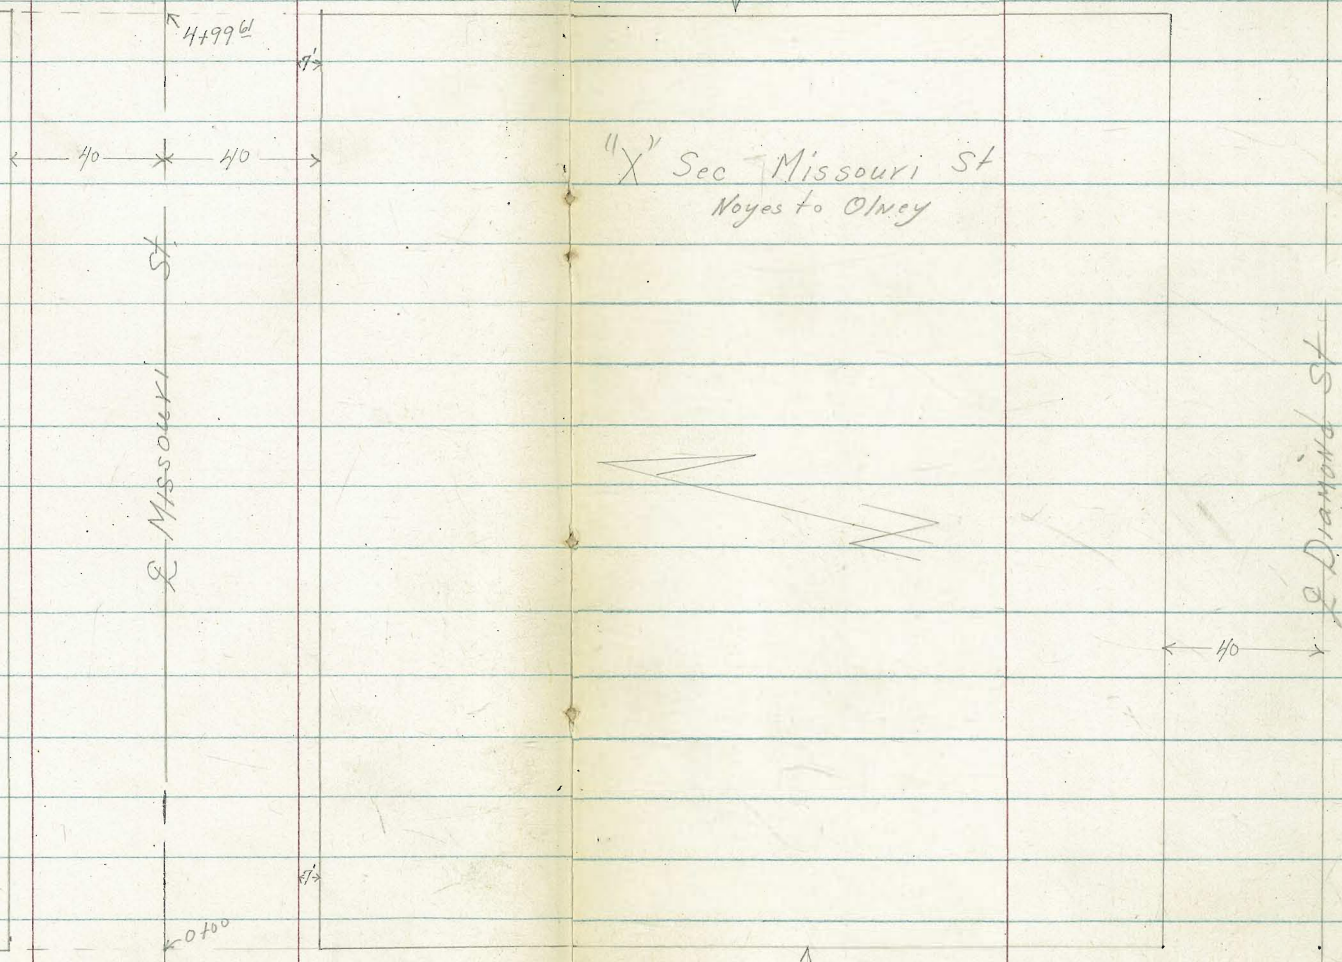 4+99 61
7'
40 40
"X" Sec Missouri St
Noyes to Olney
℄ Missouri St
℄ Diamond St
40
7'
0+00